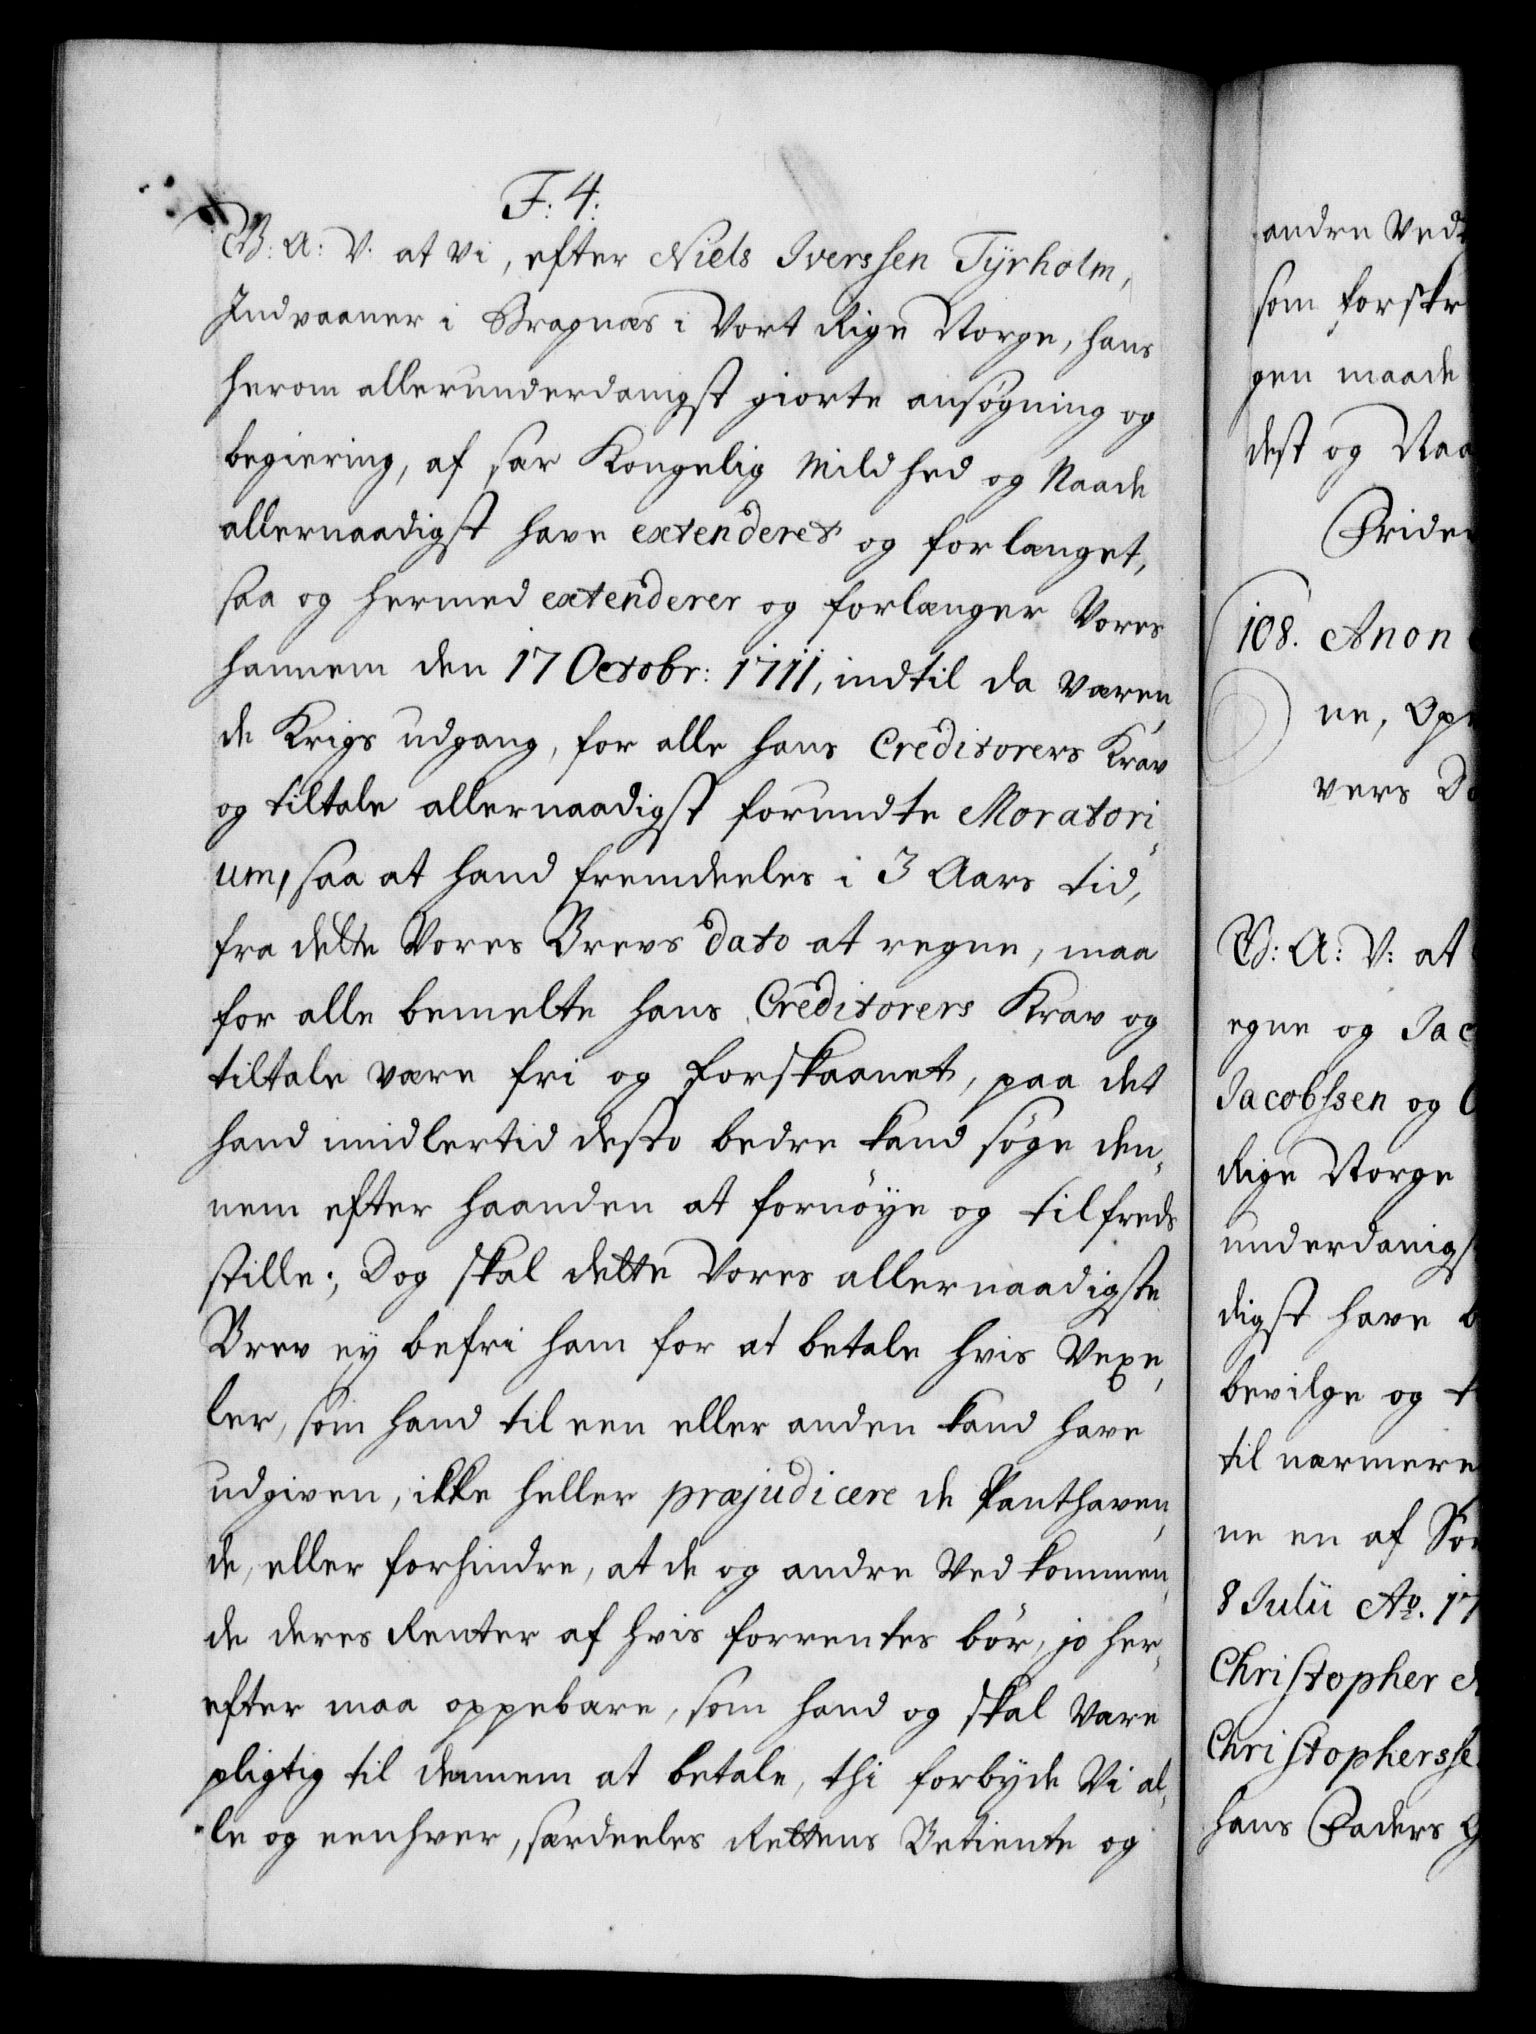 F: 4:
G: A: V: at Vi, efter Niels Iverssen Tÿrholm,
Indvaaner i Bragnæs i Vort Rige Norge, hans
herom allerunderdanigst giorte ansøgning og
begiering, af sær Kongelig Mildhed og Naade
allernaadigst have extenderet og forlænget,
saa og hermed extenderer og forlænger Vores
hannem den 17 Octobr: 1711, indtil da væren,
de Krigs udgang, for alle hans Creditorers Krav
og tiltale allernaadigst forundte Moratori„
um, saa at hand fremdeeles i 3 Aars tid,
fra dette Vores Brevs dato at regne, maa
for alle bemelte hans Creditorers Krav og
tiltale være fri og forskaanet, paa det
hand imidlertid desto bedre kand søge den„
nem efter haanden at fornöye og tilfreds
stille; Dog skal dette Vores allernaadigste
Brev ey befri ham for at betale hvis Vexe,
ler, som hand til een eller anden kand have
udgiven, ikke heller præjudicere de Panthaven,
de, eller forhindre, at de og andre Vedkommen„
de deres Renter af hvis forrentes bör, jo her„
efter maa oppebære, som hand og skal være
pligtig til dennem at betale, thi forbyde Vi al„
le og eenhver, særdeeles Rettens Betiente og
andre Ved
som forskr
gen maade
dest og Naa
Frider
108. Anon
ne, Op
vers Do
G: A: V: at
egne og Jac
Jacobssen og
Rige Norge
underdanigs
digst have b
bevilge og t
til nærmere
ne en af Sør
8 Julii Ao. 17
Christopher
Christophersse
hans Faders